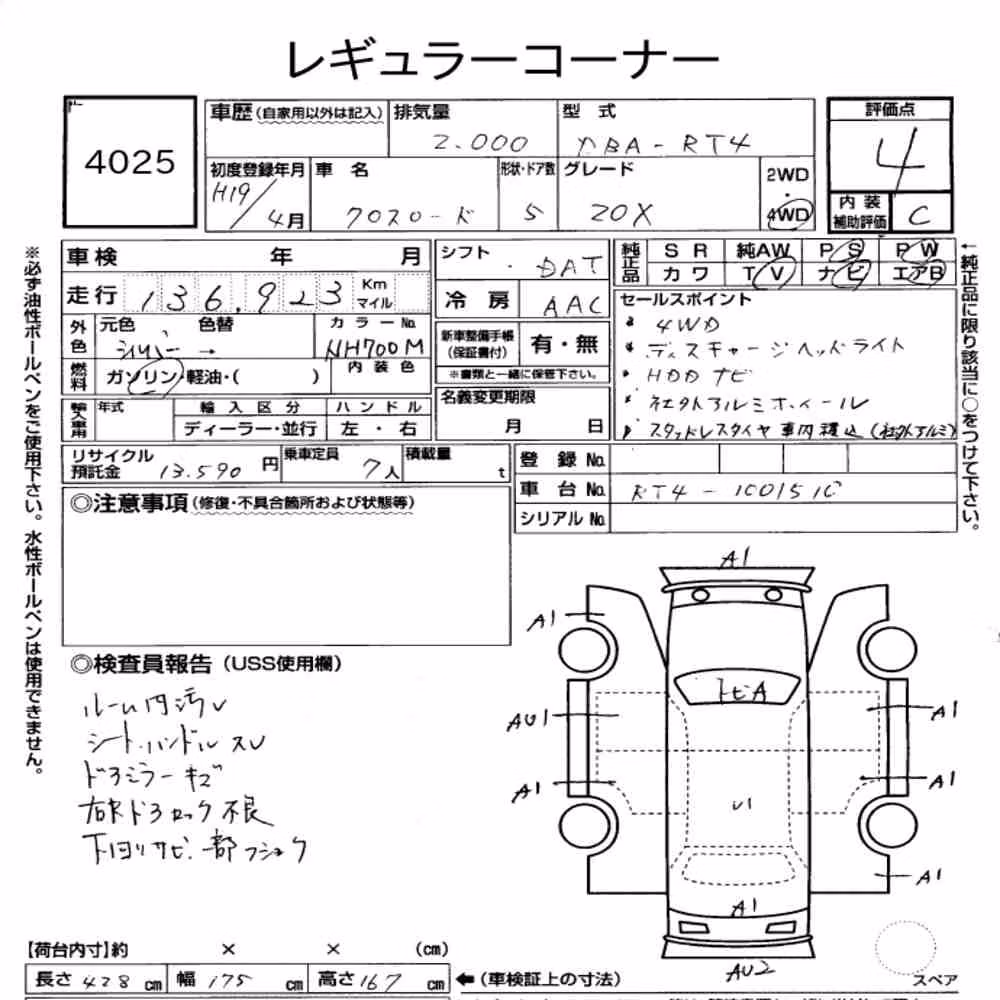 レギュラーコーナー
4025
車歴 (自家用以外は記入)
排気量
2.000
型 式
DBA-RT4
評価点
4
初度登録年月
H19/4月
車 名
クロスロード
形状・ドア数
5
グレード
20X
2WD
・
4WD
内 装
補助評価
C
車検 年 月
シフト
DAT
純正品
S R 純AW P S P W
カ ワ T V ナ ビ エアB
走行 136.923 Km マイル
冷 房 AAC
セールスポイント
4WD
ディスチャージヘッドライト
HDD ナビ
社外アルミホイール
スタッドレスタイヤ 車内積込 (社外アルミ)
外色
元色 色替
シルバー →
カ ラ ー No.
NH700M
新車整備手帳
(保証書付)
有・無
※書類と一緒に保管下さい。
燃料
ガソリン・軽油・( )
内 装 色
名義変更期限
月 日
輸入車用
年式
輸 入 区 分
ディーラー・並行
ハ ン ド ル
左 ・ 右
リサイクル
預託金
13.590 円
乗車定員
7人
積載量
t
登 録 No.
車 台 No. RT4-1001510
シリアル No.
◎注意事項 (修復・不具合箇所および状態等)
◎検査員報告 (USS使用欄)
ルーム内汚レ
シート、ハンドル スレ
ドアミラー キズ
右Rドアロック 不良
下廻リサビ 一部フショク
A1
A1
トビA
AU1
A1
A1
A1
U1
A1
A1
AU2
スペア
【荷台内寸】約 × × (cm)
長さ 428 cm 幅 175 cm 高さ 167 cm
←(車検証上の寸法)
※必ず油性ボールペンをご使用下さい。水性ボールペンは使用できません。
←純正品に限り該当に○をつけて下さい。